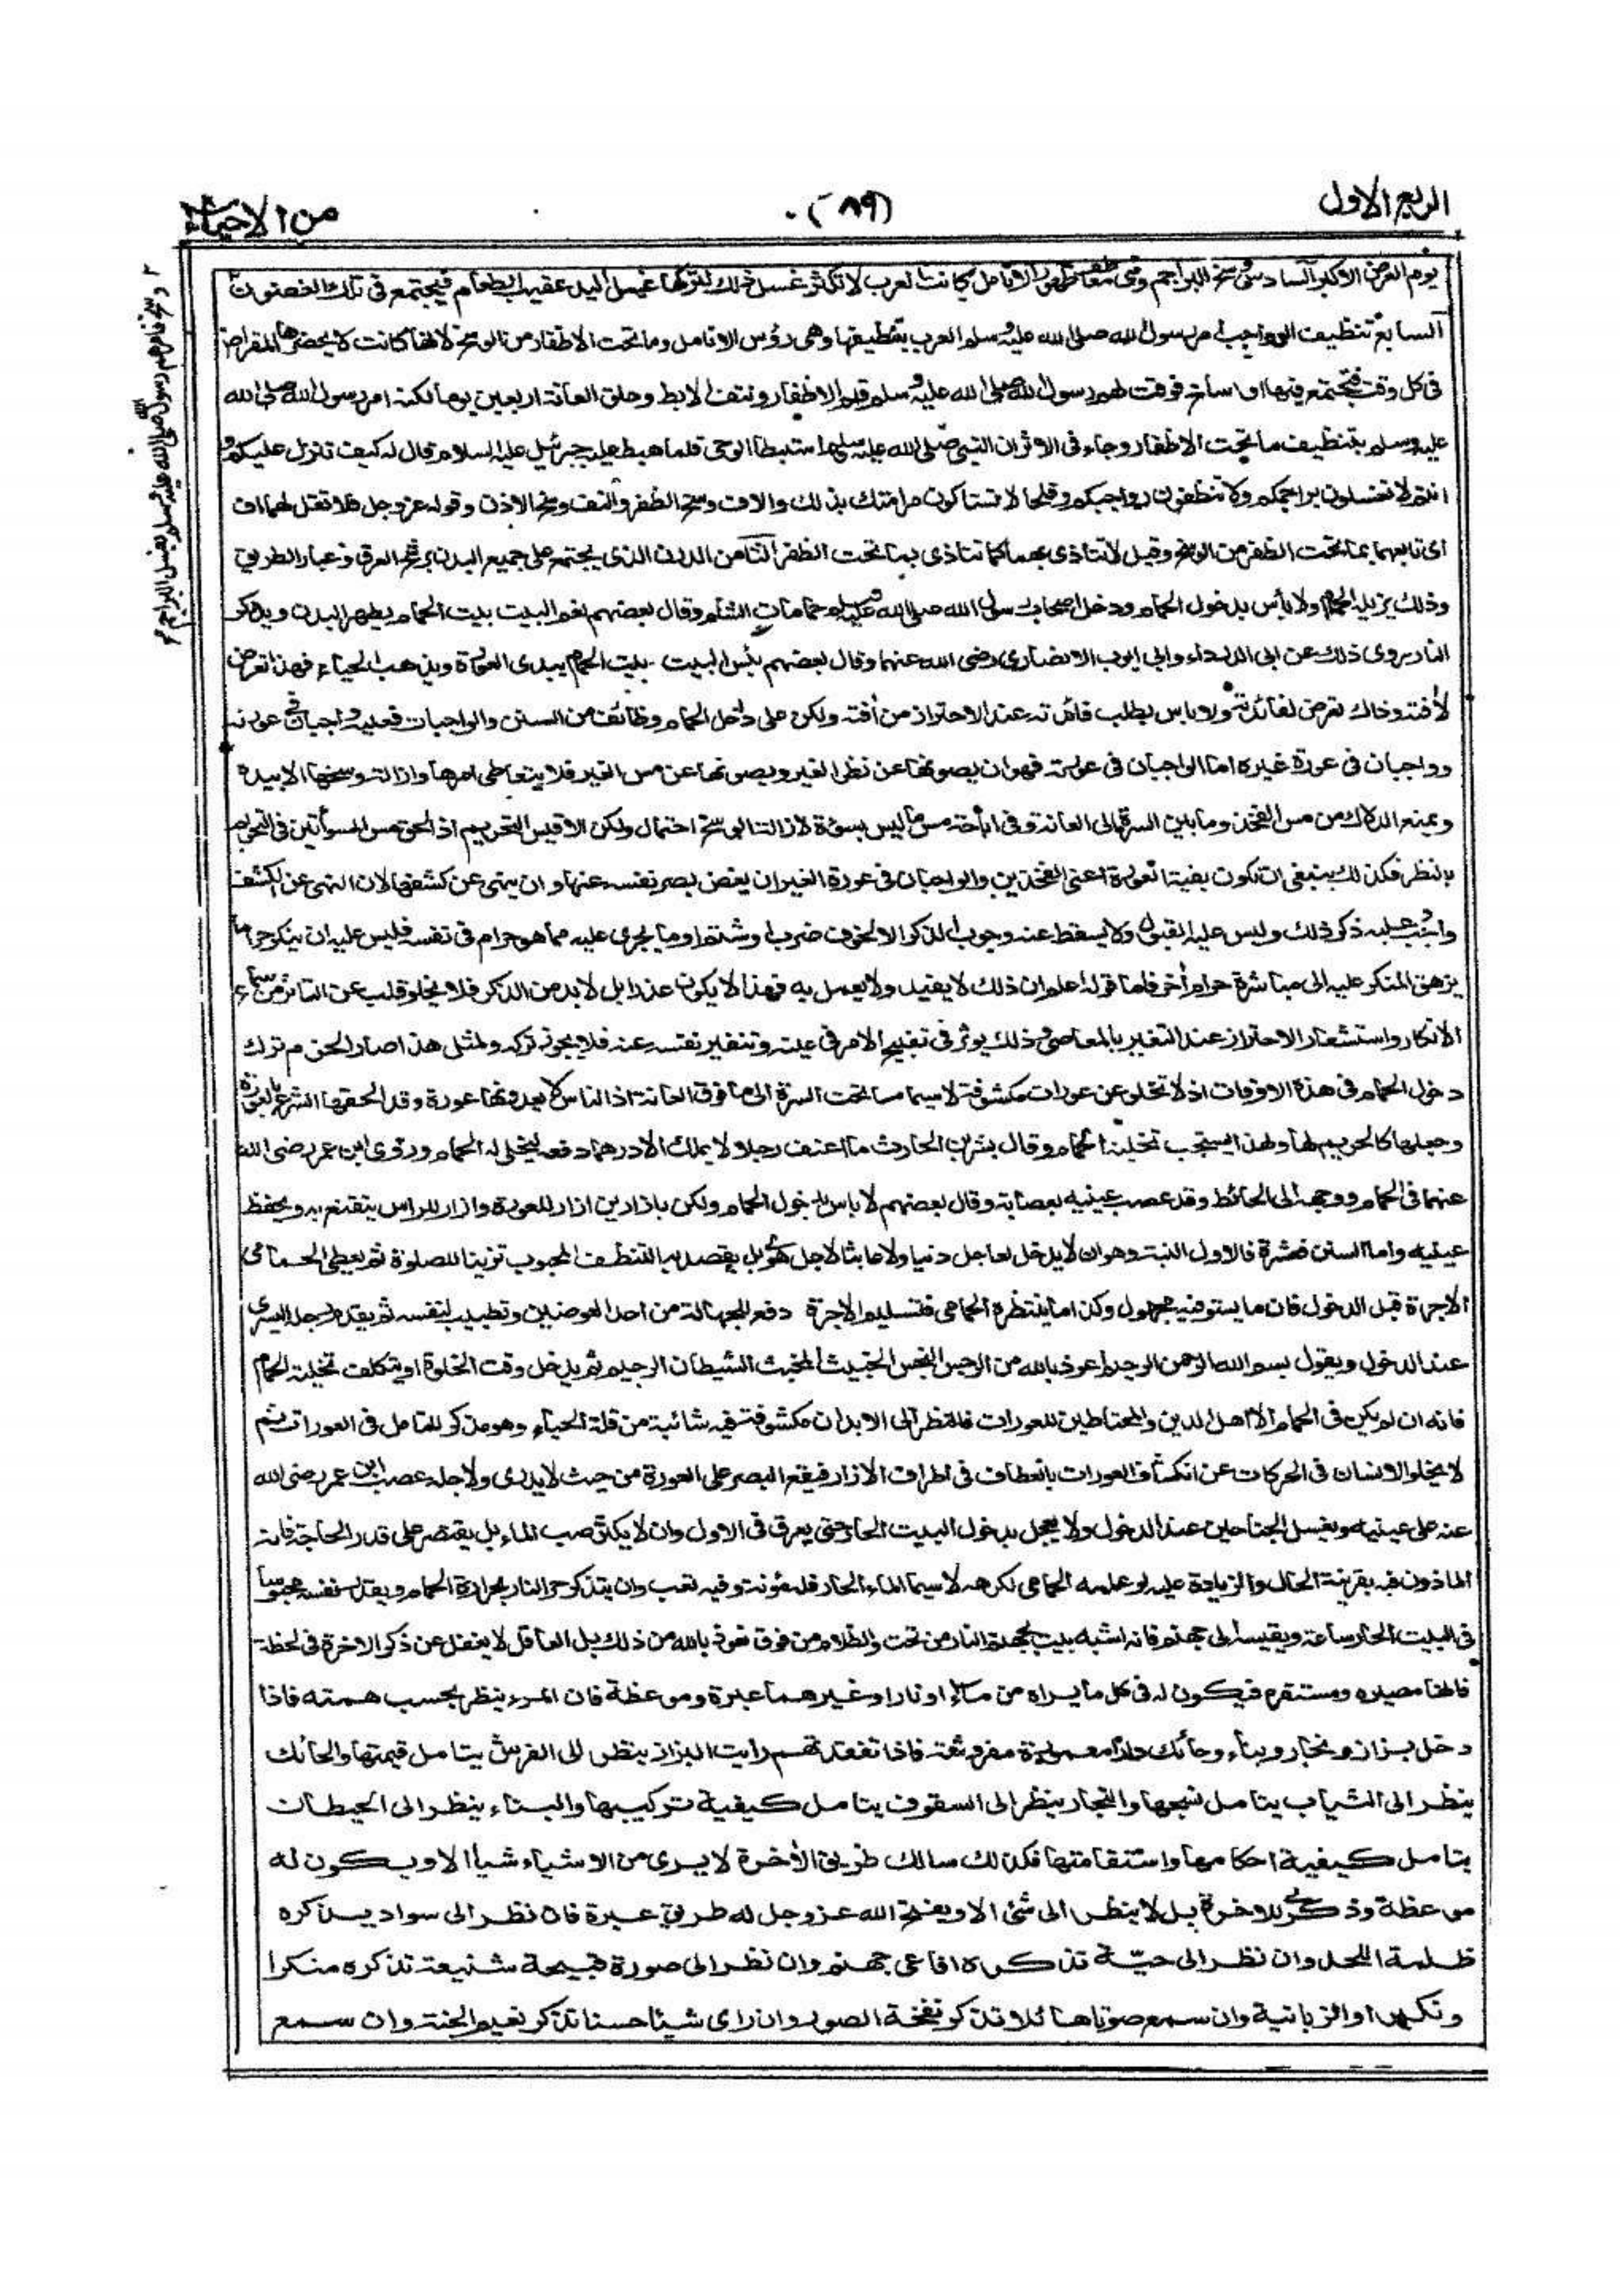 الربع الاول
(٨٩)
من الاحياء
يوم العرض الاكبر السادس وسخ البراجم وهى معاطف ظهور الانامل كانت العرب لا تكثر غسل ذلك لتركها غسل اليد عقيب الطعام فيجتمع فى تلك الغضون
السابع تنظيف الرواجب امر رسول الله صلى الله عليه وسلم العرب بتنظيفها وهى رؤس الانامل وما تحت الاظفار من الوسخ لانها كانت لا يحضرها المقراض
فى كل وقت فتجتمع فيها اوساخ فوقت لهم رسول الله صلى الله عليه وسلم قلم الاظفار ونتف الابط وحلق العانة اربعين يوما لكنه امر رسول الله صلى الله
عليه وسلم بتنظيف ما تحت الاظفار وجاء فى الاثر ان النبى صلى الله عليه وسلم استبطا الوحى فلما هبط عليه جبرئيل عليه السلام قال له كيف تنزل عليكم و
انتم لا تغسلون براجمكم ولا تنظفون رواجبكم وقلحا لا تستاكون مر امتك بذلك والاف وسخ الظفر والتف وسخ الاذن وقوله عز وجل فلا تقل لهما اف
اى تابعهما بما تحت الظفر من الوسخ وقيل لا تتاذى بهما كما تتاذى بما تحت الظفر الثامن الدرن الذى يجتمع على جميع البدن برشح العرق وغبار الطريق
وذلك يزيله الحمام ولا بأس بدخول الحمام ودخل اصحاب رسول الله صلى الله عليه وسلم حمامات الشام وقال بعضهم نعم البيت بيت الحمام يطهر البدن ويذكر
النار روى ذلك عن ابى الدرداء وابى ايوب الانصارى رضى الله عنهما وقال بعضهم بئس البيت بيت الحمام يبدى العورة ويذهب الحياء فهذا تعرض
لأفته وذاك تعرض لفائدته ولا باس بطلب فائدته عند الاحتراز من أفته ولكن على داخل الحمام وظائف من السنن والواجبات فعليه واجبان فى عورته
وواجبان فى عورة غيره اما الواجبان فى عورته فهو ان يصونها عن نظر الغير ويصونها عن مس الغير فلا يتعاطى امرها وازالة وسخها الا بيده
ويمنع الدلاك من مس الفخذ وما بين السرة الى العانة وفى اباحة مس ما ليس بسوءة لازالة الوسخ احتمال ولكن الاقيس التحريم اذ الحق مس السوأتين فى التحريم
بالنظر فكذلك ينبغى ان تكون بقية العورة اعنى الفخذين والواجبان فى عورة الغير ان يغض بصر نفسه عنها وان ينهى عن كشفها لان النهى عن الكشف
واجب عليه ذكر ذلك وليس عليه القبول ولا يسقط عنه وجوب الذكر الا لخوف ضرب او شتم او ما يجرى عليه مما هو حرام فى نفسه فليس عليه ان ينكر حراما
يزهق المنكر عليه الى مباشرة حرام أخر فاما قوله اعلم ان ذلك لا يفيد ولا يعمل به فهذا لا يكون عذرا بل لا بد من الذكر فلا يخلو قلب عن التاثر من سماع
الانكار واستشعار الاحتراز عند التغير بالمعاصى وذلك يوثر فى تقبيح الامر فى عينه وتنفير نفسه عنه فلا يجوز تركه ولمثل هذا صار الحزم ترك
دخول الحمام فى هذه الاوقات اذ لا تخلو عن عورات مكشوفة لا سيما ما تحت السرة الى ما فوق العانة اذ الناس لا يعدونها عورة وقد الحقها الشرع بالعورة
وجعلها كالحريم لها ولهذا يستحب تخلية الحمام وقال بشر بن الحارث ما اعنف رجلا لا يملك الا درهما دفعه ليخلى له الحمام وروى ابن عمر رضى الله
عنهما فى الحمام ووجهه الى الحائط وقد عصب عينيه بعصابة وقال بعضهم لا باس بدخول الحمام ولكن بازارين ازار للعورة وازار للراس يتقنع به ويحفظ
عينيه واما السنن فعشرة فالاول النية وهو ان لا يدخل لعاجل دنيا ولا عابثا لاجل هوى بل يقصد به التنظف المحبوب تزينا للصلوة ثم يعطى الحمامى
الاجرة قبل الدخول فان ما يستوفيه مجهول وكذا ما ينتظره الحمامى فتسليم الاجرة دفع للجهالة من احد العوضين وتطييب لنفسه ثم يقدم رجله اليسرى
عند الدخول ويقول بسم الله الرحمن الرحيم اعوذ بالله من الرجس النجس الخبيث المخبث الشيطان الرجيم ثم يدخل وقت الخلوة او يتكلف تخلية الحمام
فانه ان لم يكن فى الحمام الا اهل الدين والمحتاطين للعورات فالنظر الى الابدان مكشوفة فيه شائبة من قلة الحياء وهو مذكر للتامل فى العورات ثم
لا يخلو الانسان فى الحركات عن انكشاف العورات بانعطاف فى اطراف الازار فيقع البصر على العورة من حيث لا يدرى ولاجله عصب ابن عمر رضى الله
عنه على عينيه ويغسل الجناحين عند الدخول ولا يعجل بدخول البيت الحار حتى يعرق فى الاول وان لا يكثر صب الماء بل يقتصر على قدر الحاجة فانه
الماذون فيه بقرينة الحال والزيادة عليه لو علمه الحمامى لكرهه لا سيما الماء الحار فله مؤنة وفيه تعب وان يتذكر حر النار بحرارة الحمام ويقدر نفسه محبوسا
فى البيت الحار ساعة ويقيسه الى جهنم فانه اشبه بيت بجهنم النار من تحت والظلام من فوق نعوذ بالله من ذلك بل العاقل لا يغفل عن ذكر الاخرة فى لحظة
فانها مصيره ومستقره فيكون له فى كل ما يراه من ماء او نار او غيرهما عبرة وموعظة فان المرء ينظر بحسب همته فاذا
دخل بزاز ونجار وبناء وحائك دارا معمورة مفروشة فاذا تفقدتهم رايت البزاز ينظر الى الفرش يتامل قيمتها والحائك
ينظر الى الثياب يتامل نسجها والنجار ينظر الى السقوف يتامل كيفية تركيبها والبناء ينظر الى الحيطان
يتامل كيفية احكامها واستقامتها فكذلك سالك طريق الأخرة لا يرى من الاشياء شيأ الا ويكون له
موعظة وذكرى للاخرة بل لا ينظر الى شئ الا ويفتح الله عز وجل له طريق عبرة فان نظر الى سواد يذكره
ظلمة اللحد وان نظر الى حيّة تذكره افاعى جهنم وان نظر الى صورة قبيحة شنيعة تذكره منكرا
ونكيرا والزبانية وان سمع صوتا هائلا تذكر نفخة الصور وان راى شيئا حسنا تذكر نعيم الجنة وان سمع
وسخ فامرهم رسول صلى الله عليه وسلم بغسل البراجم